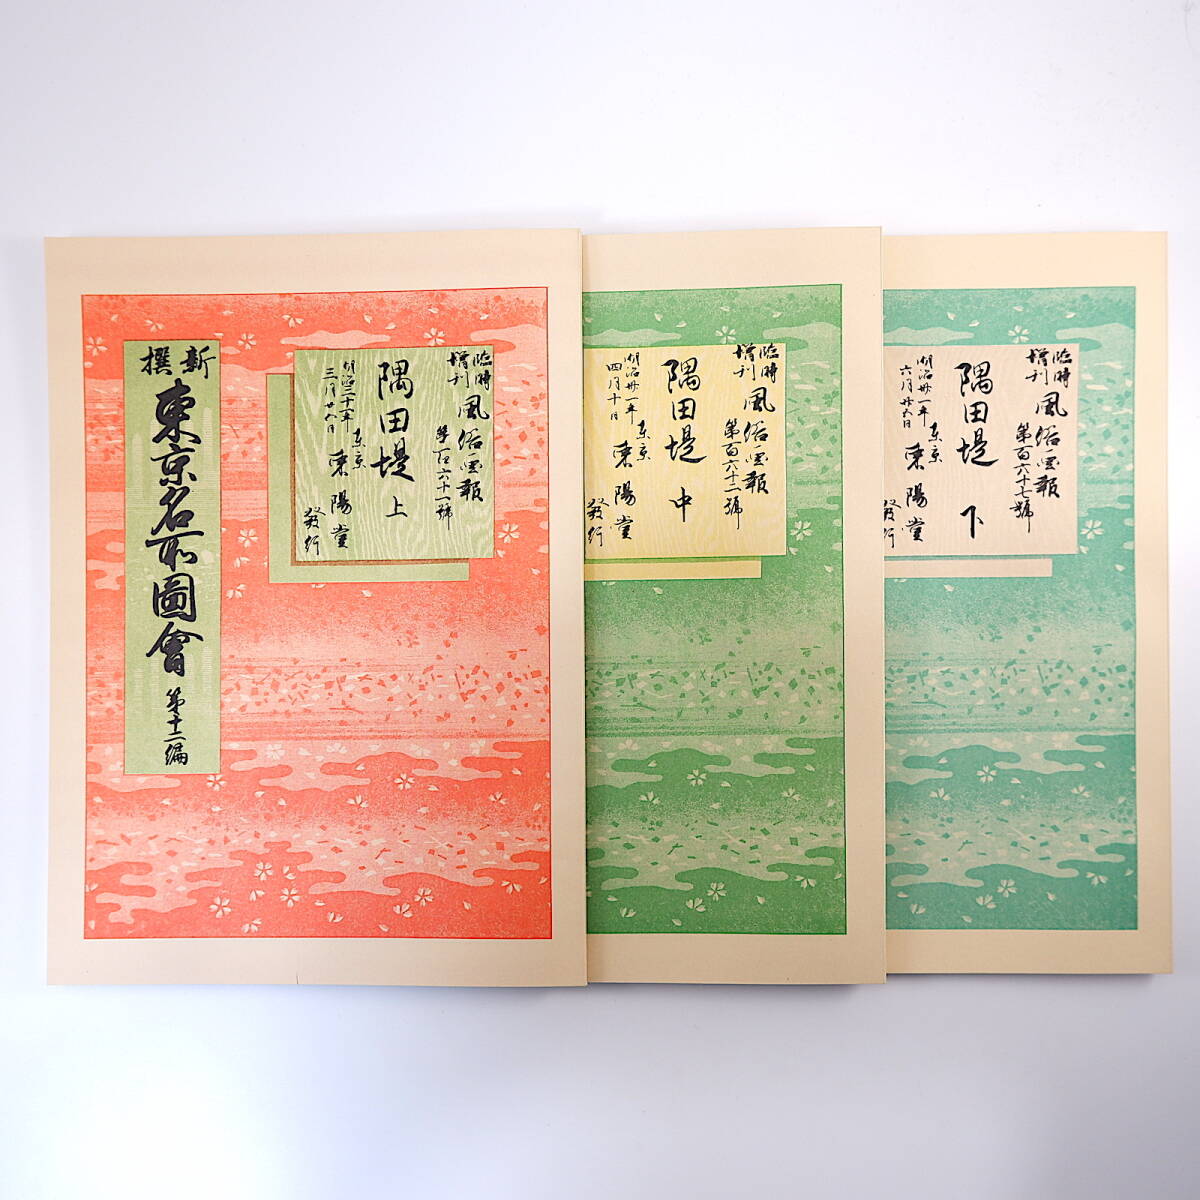 新撰
東京名所圖會
第十二編
臨時
増刊
風俗画報
第百六十一號
隅田堤 上
明治三十一年
三月廿五日
東京
東陽堂
發行
臨時
増刊
風俗画報
第百六十二號
隅田堤 中
明治卅一年
四月十日
東京
東陽堂
發行
臨時
増刊
風俗画報
第百六十七號
隅田堤 下
明治卅一年
六月廿五日
東京
東陽堂
發行